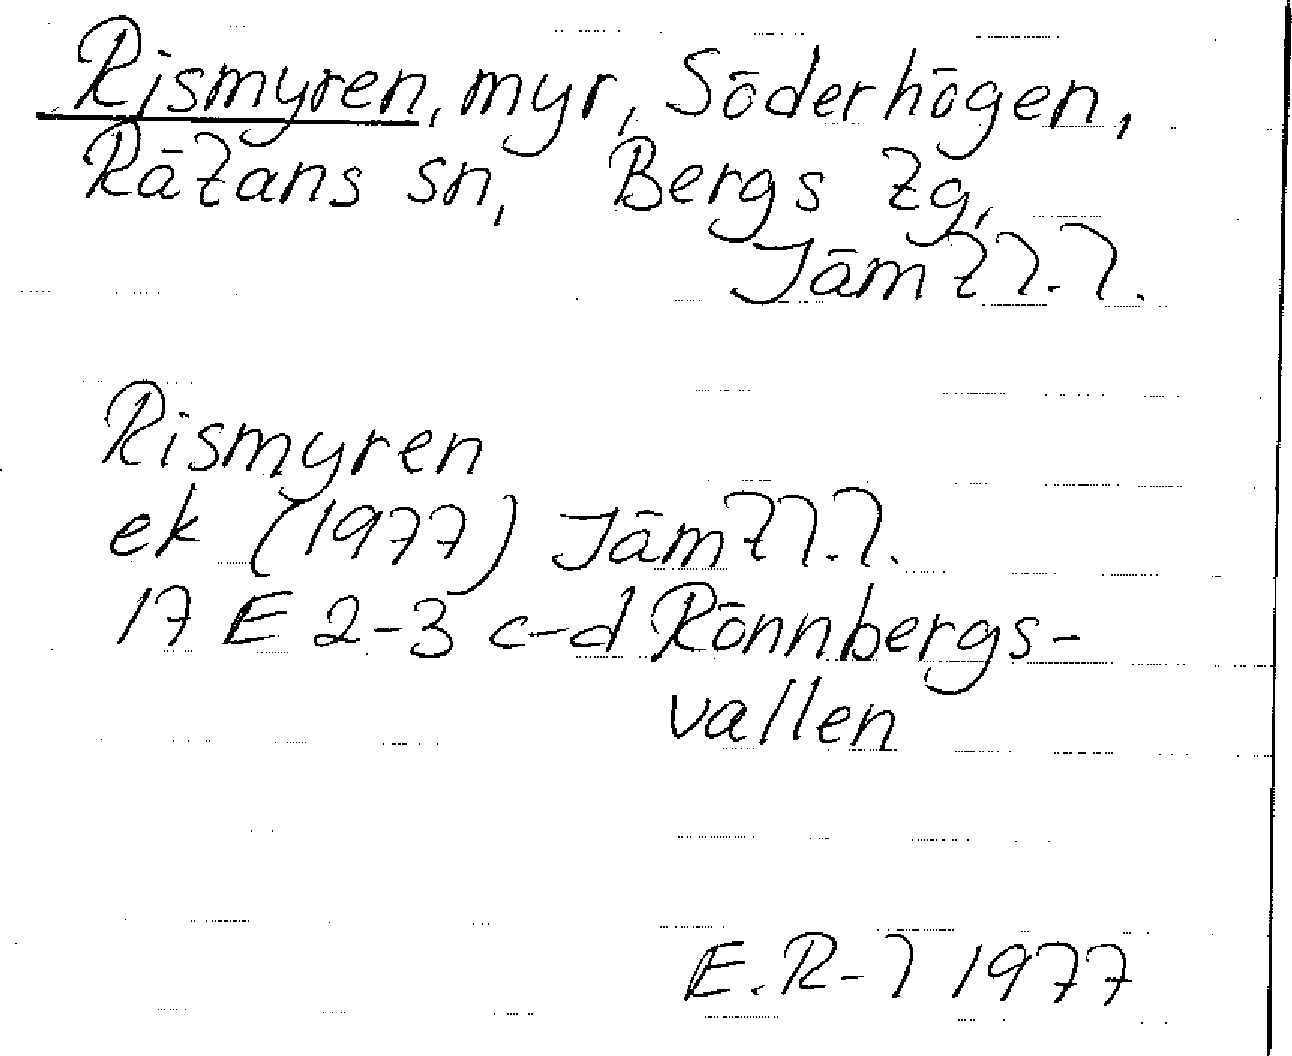 Rismyren, myr, Söderhögen,
Rätans sn, Bergs tg,
Jämtl.l.
Rismyren
ek (1977) Jämtl.l.
17 E 2-3 c-d Rönnbergs-
vallen
E.R-l 1977